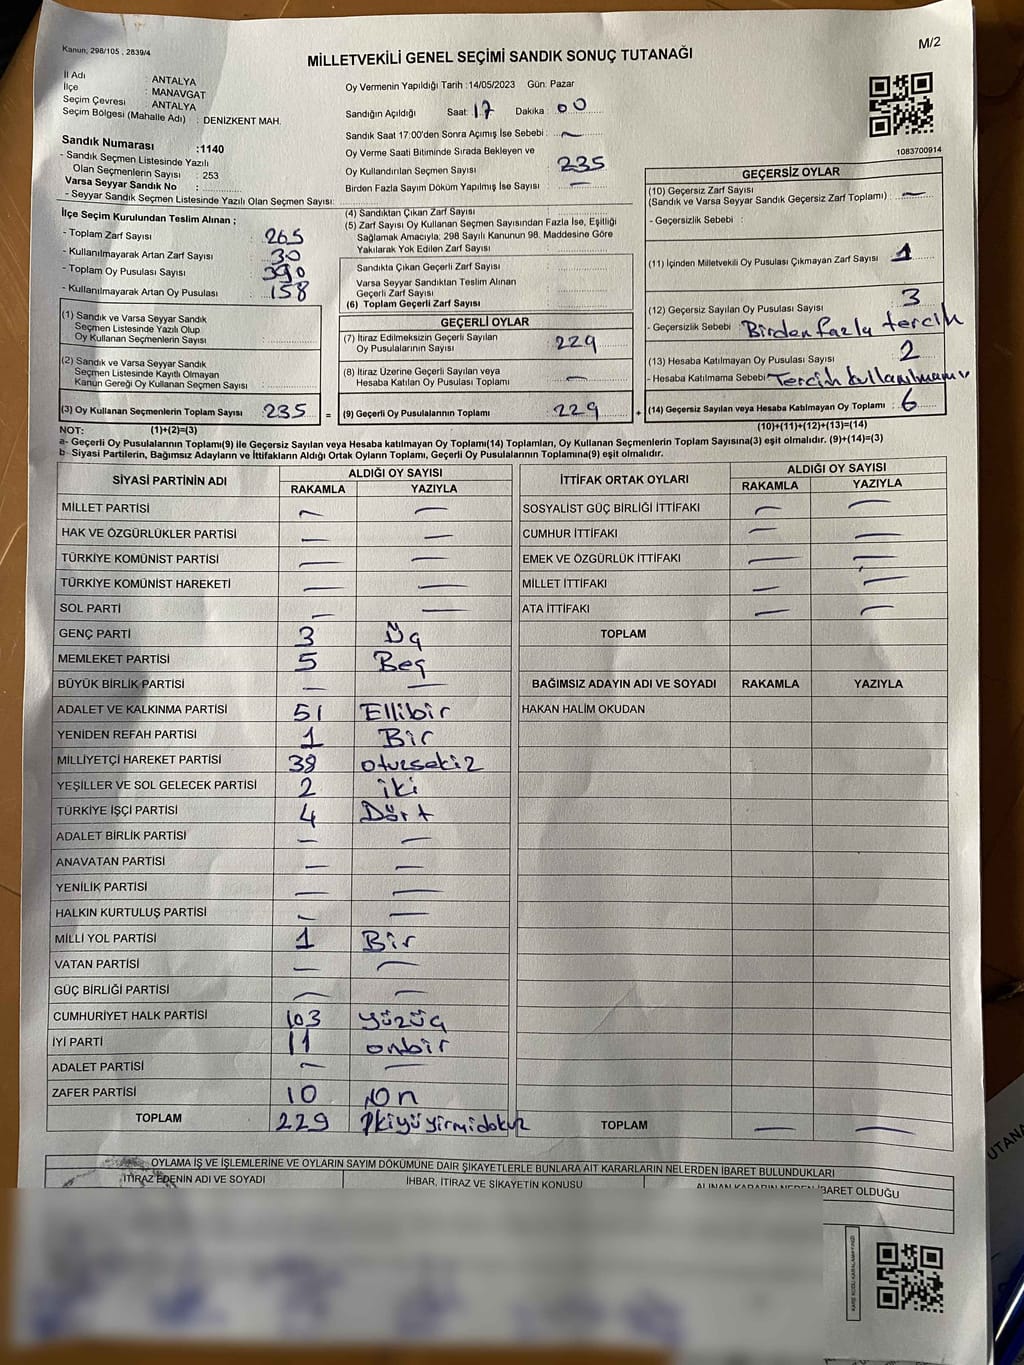 Kanun, 298/105 , 2839/4
MİLLETVEKİLİ GENEL SEÇİMİ SANDIK SONUÇ TUTANAĞI
M/2
İl Adı : ANTALYA
İlçe : MANAVGAT
Seçim Çevresi : ANTALYA
Seçim Bölgesi (Mahalle Adı) : DENİZKENT MAH.
Sandık Numarası :1140
- Sandık Seçmen Listesinde Yazılı
Olan Seçmenlerin Sayısı : 253
Varsa Seyyar Sandık No :
- Seyyar Sandık Seçmen Listesinde Yazılı Olan Seçmen Sayısı:
Oy Vermenin Yapıldığı Tarih :14/05/2023 Gün: Pazar
Sandığın Açıldığı Saat: 17 Dakika : 00
Sandık Saat 17:00'den Sonra Açımış İse Sebebi : —
Oy Verme Saati Bitiminde Sırada Bekleyen ve
Oy Kullandırılan Seçmen Sayısı : 235
Birden Fazla Sayım Döküm Yapılmış İse Sayısı : —
1083700914
İlçe Seçim Kurulundan Teslim Alınan ;
- Toplam Zarf Sayısı : 265
- Kullanılmayarak Artan Zarf Sayısı : 30
- Toplam Oy Pusulası Sayısı : 390
- Kullanılmayarak Artan Oy Pusulası : 158
(1) Sandık ve Varsa Seyyar Sandık
Seçmen Listesinde Yazılı Olup
Oy Kullanan Seçmenlerin Sayısı :
(2) Sandık ve Varsa Seyyar Sandık
Seçmen Listesinde Kayıtlı Olmayan
Kanun Gereği Oy Kullanan Seçmen Sayısı :
(3) Oy Kullanan Seçmenlerin Toplam Sayısı : 235 =
(4) Sandıktan Çıkan Zarf Sayısı :
(5) Zarf Sayısı Oy Kullanan Seçmen Sayısından Fazla İse, Eşitliği
Sağlamak Amacıyla, 298 Sayılı Kanunun 98. Maddesine Göre
Yakılarak Yok Edilen Zarf Sayısı :
Sandıkta Çıkan Geçerli Zarf Sayısı :
Varsa Seyyar Sandıktan Teslim Alınan
Geçerli Zarf Sayısı :
(6) Toplam Geçerli Zarf Sayısı :
GEÇERLİ OYLAR
(7) İtiraz Edilmeksizin Geçerli Sayılan
Oy Pusulalarının Sayısı : 229
(8) İtiraz Üzerine Geçerli Sayılan veya
Hesaba Katılan Oy Pusulası Toplamı : —
(9) Geçerli Oy Pusulalarının Toplamı : 229 +
GEÇERSİZ OYLAR
(10) Geçersiz Zarf Sayısı
(Sandık ve Varsa Seyyar Sandık Geçersiz Zarf Toplamı) : —
- Geçersizlik Sebebi :
(11) İçinden Milletvekili Oy Pusulası Çıkmayan Zarf Sayısı : 1
(12) Geçersiz Sayılan Oy Pusulası Sayısı : 3
- Geçersizlik Sebebi : Birden fazla tercih
(13) Hesaba Katılmayan Oy Pusulası Sayısı : 2
- Hesaba Katılmama Sebebi : Tercih kullanılmamış
(14) Geçersiz Sayılan veya Hesaba Katılmayan Oy Toplamı : 6
NOT: (1)+(2)=(3) (10)+(11)+(12)+(13)=(14)
a- Geçerli Oy Pusulalarının Toplamı(9) ile Geçersiz Sayılan veya Hesaba katılmayan Oy Toplamı(14) Toplamları, Oy Kullanan Seçmenlerin Toplam Sayısına(3) eşit olmalıdır. (9)+(14)=(3)
b- Siyasi Partilerin, Bağımsız Adayların ve İttifakların Aldığı Oyların Toplamı, Geçerli Oy Pusulalarının Toplamına(9) eşit olmalıdır.
SİYASİ PARTİNİN ADI ALDIĞI OY SAYISI
RAKAMLA YAZIYLA
MİLLET PARTİSİ — —
HAK VE ÖZGÜRLÜKLER PARTİSİ — —
TÜRKİYE KOMÜNİST PARTİSİ — —
TÜRKİYE KOMÜNİST HAREKETİ — —
SOL PARTİ — —
GENÇ PARTİ 3 Üç
MEMLEKET PARTİSİ 5 Beş
BÜYÜK BİRLİK PARTİSİ — —
ADALET VE KALKINMA PARTİSİ 51 Ellibir
YENİDEN REFAH PARTİSİ 1 Bir
MİLLİYETÇİ HAREKET PARTİSİ 38 otuzsekiz
YEŞİLLER VE SOL GELECEK PARTİSİ 2 iki
TÜRKİYE İŞÇİ PARTİSİ 4 Dört
ADALET BİRLİK PARTİSİ — —
ANAVATAN PARTİSİ — —
YENİLİK PARTİSİ — —
HALKIN KURTULUŞ PARTİSİ — —
MİLLİ YOL PARTİSİ 1 Bir
VATAN PARTİSİ — —
GÜÇ BİRLİĞİ PARTİSİ — —
CUMHURİYET HALK PARTİSİ 103 yüzüç
İYİ PARTİ 11 onbir
ADALET PARTİSİ — —
ZAFER PARTİSİ 10 On
TOPLAM 229 İkiyüyirmidokuz
İTTİFAK ORTAK OYLARI ALDIĞI OY SAYISI
RAKAMLA YAZIYLA
SOSYALİST GÜÇ BİRLİĞİ İTTİFAKI — —
CUMHUR İTTİFAKI — —
EMEK VE ÖZGÜRLÜK İTTİFAKI — —
MİLLET İTTİFAKI — —
ATA İTTİFAKI — —
TOPLAM
BAĞIMSIZ ADAYIN ADI VE SOYADI RAKAMLA YAZIYLA
HAKAN HALİM OKUDAN
TOPLAM — —
OYLAMA İŞ VE İŞLEMLERİNE VE OYLARIN SAYIM DÖKÜMÜNE DAİR ŞİKAYETLERLE BUNLARA AİT KARARLARIN NELERDEN İBARET BULUNDUKLARI
İTİRAZ EDENİN ADI VE SOYADI İHBAR, İTİRAZ VE ŞİKAYETİN KONUSU ALINAN KARARIN NEDEN İBARET OLDUĞU